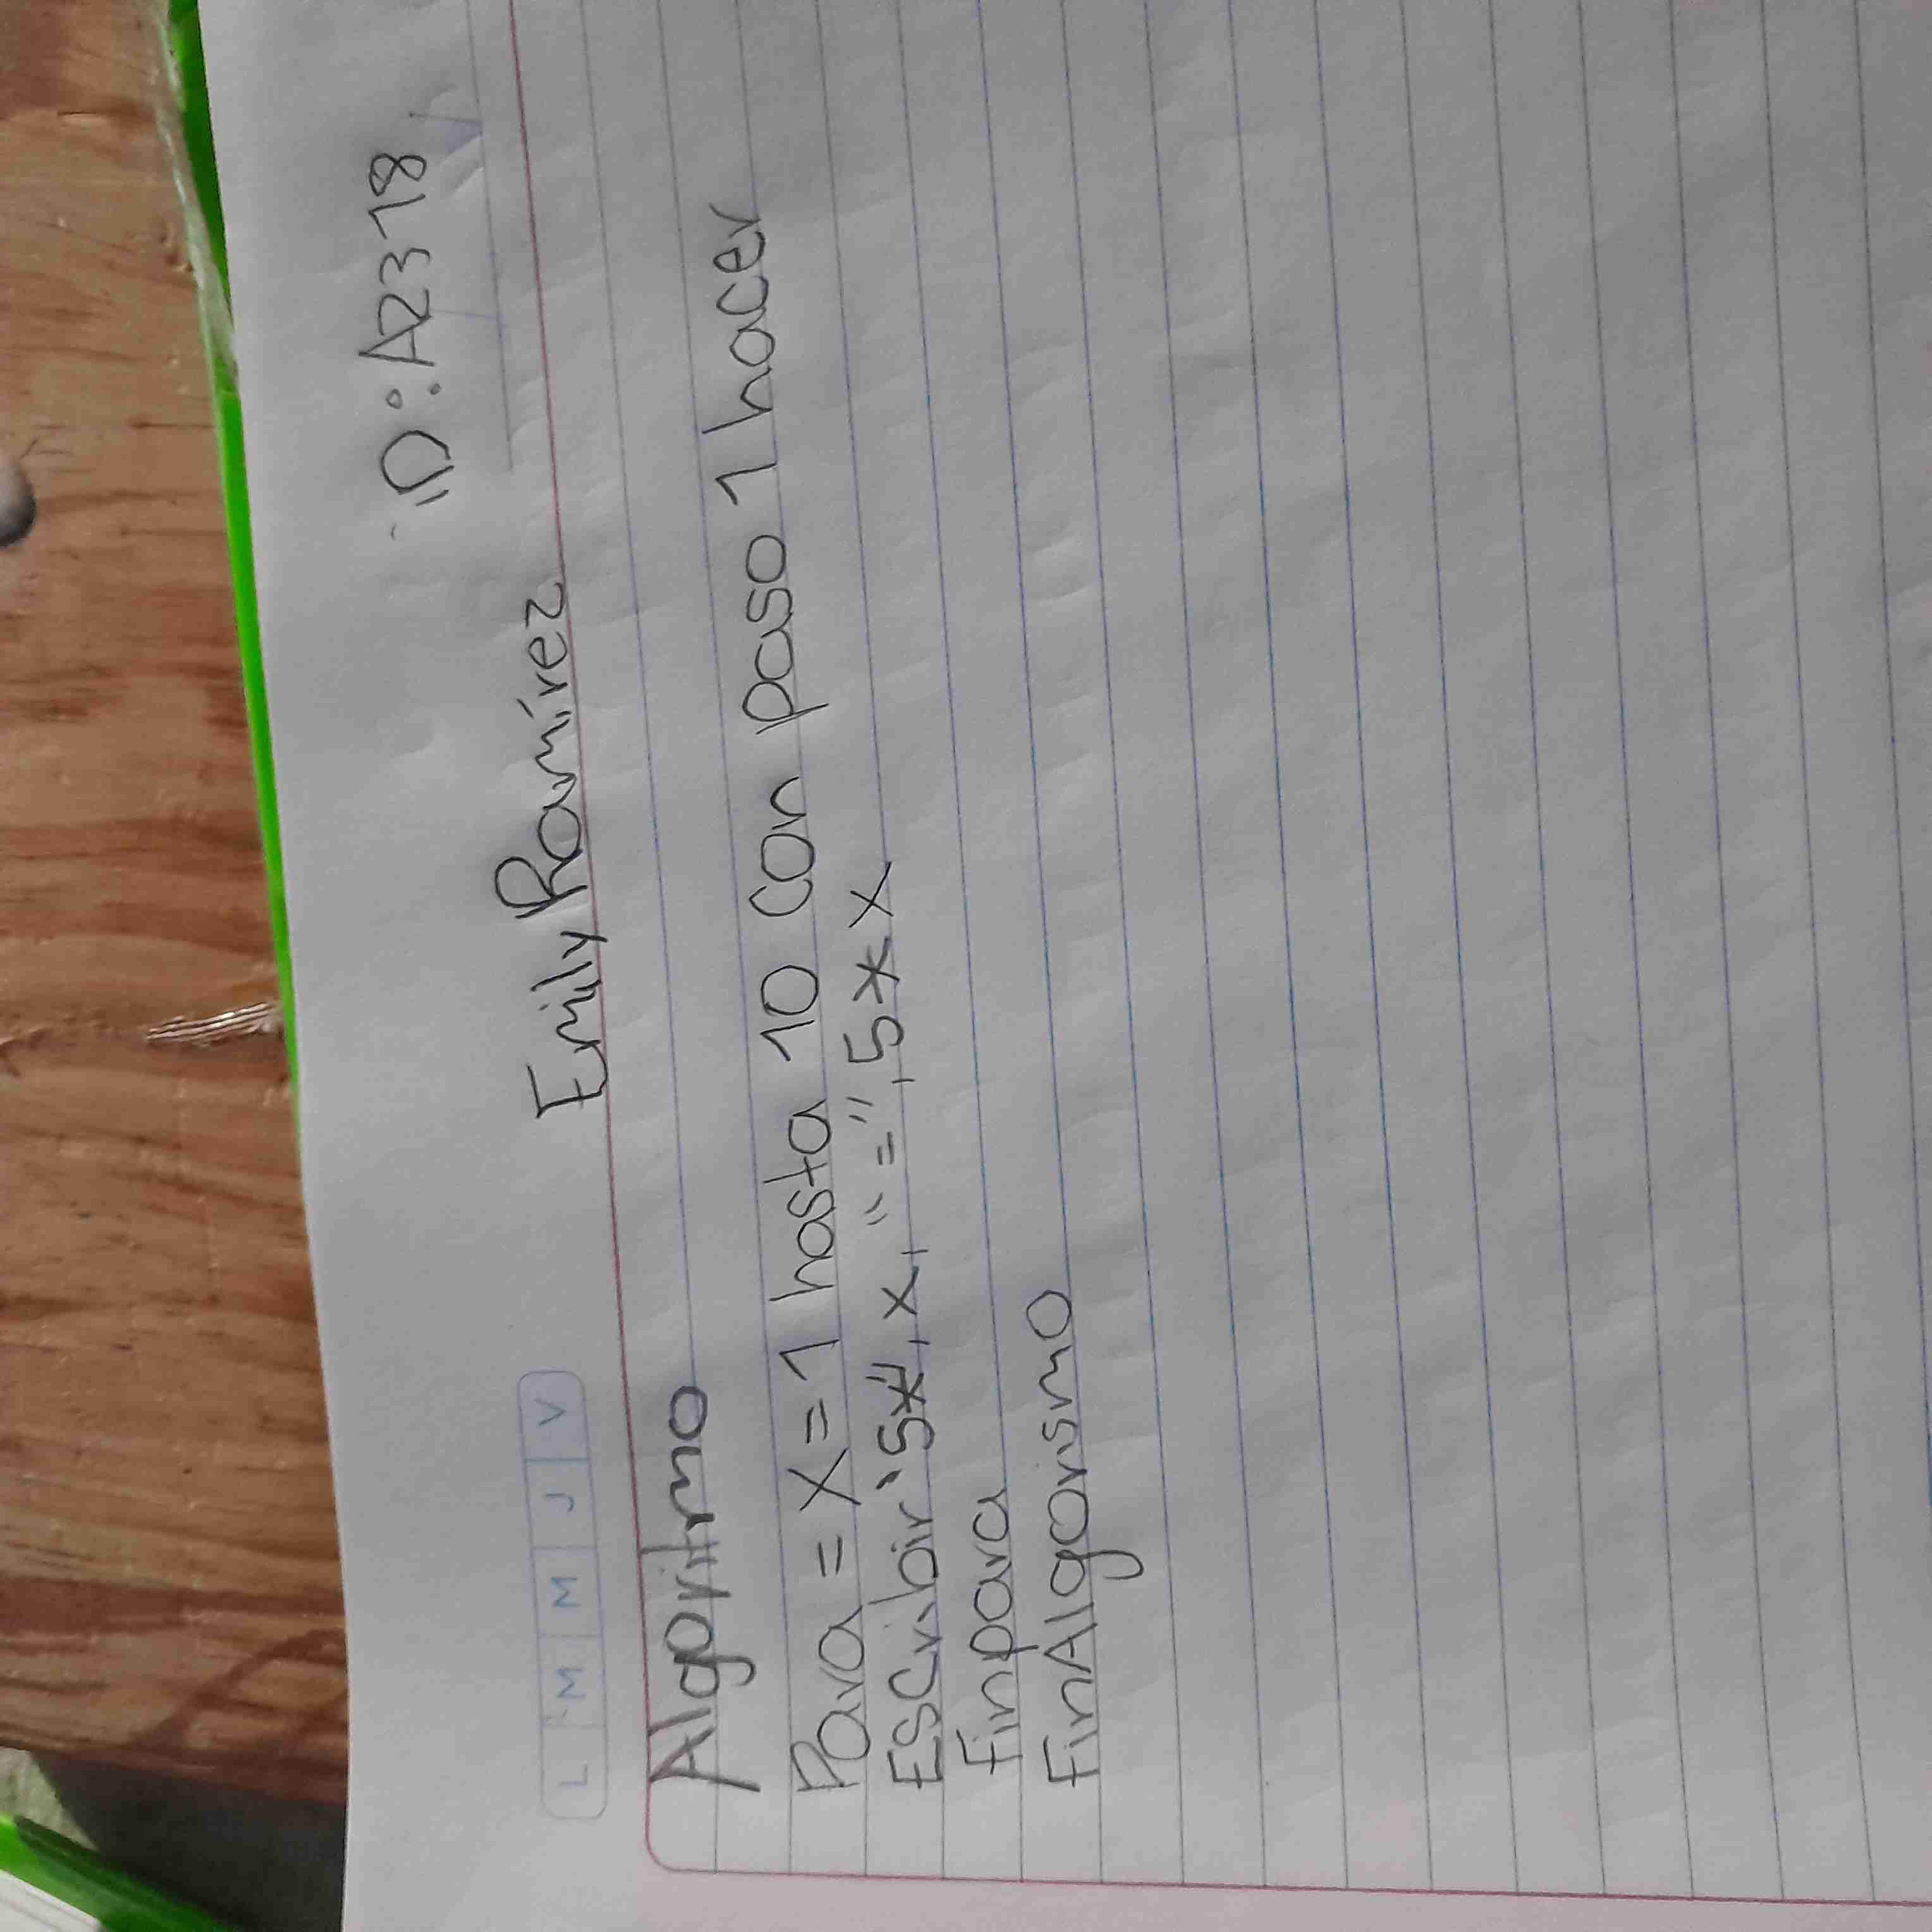 ID: A2318
Emily Ramírez
L M M J V
Algoritmo
Para = X = 1 hasta 10 con paso 1 hacer
Escribir "5*", x, " = ", 5 * x
Finpara
FinAlgorismo